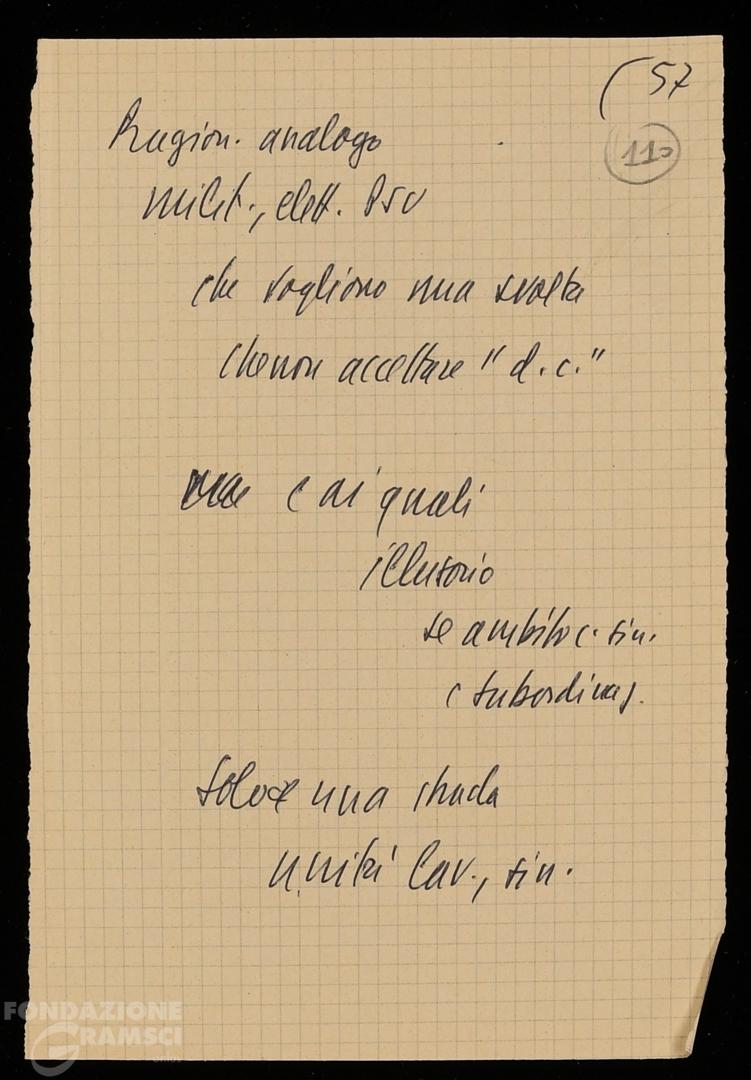 (57
110
Ragion. analogo
milit., elett. PSU
che vogliono una svolta
che non accettare "d.c."
ma e ai quali
illusorio
se ambito c. sin.
e subordinaz.
Solo una strada
unità lav., sin.
FONDAZIONE
GRAMSCI
onlus